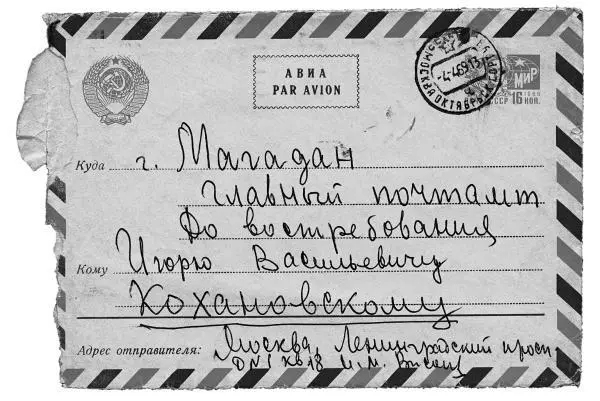 АВИА
PAR AVION
МОСКВА ОКТЯБРЬСК
МИР
СССР 16 КОП.
Куда г. Магадан
главный почтамт
До востребования
Кому Игорю Васильевичу
Кохановскому
Адрес отправителя: Москва, Ленинградский просп
кв 18 И.М.